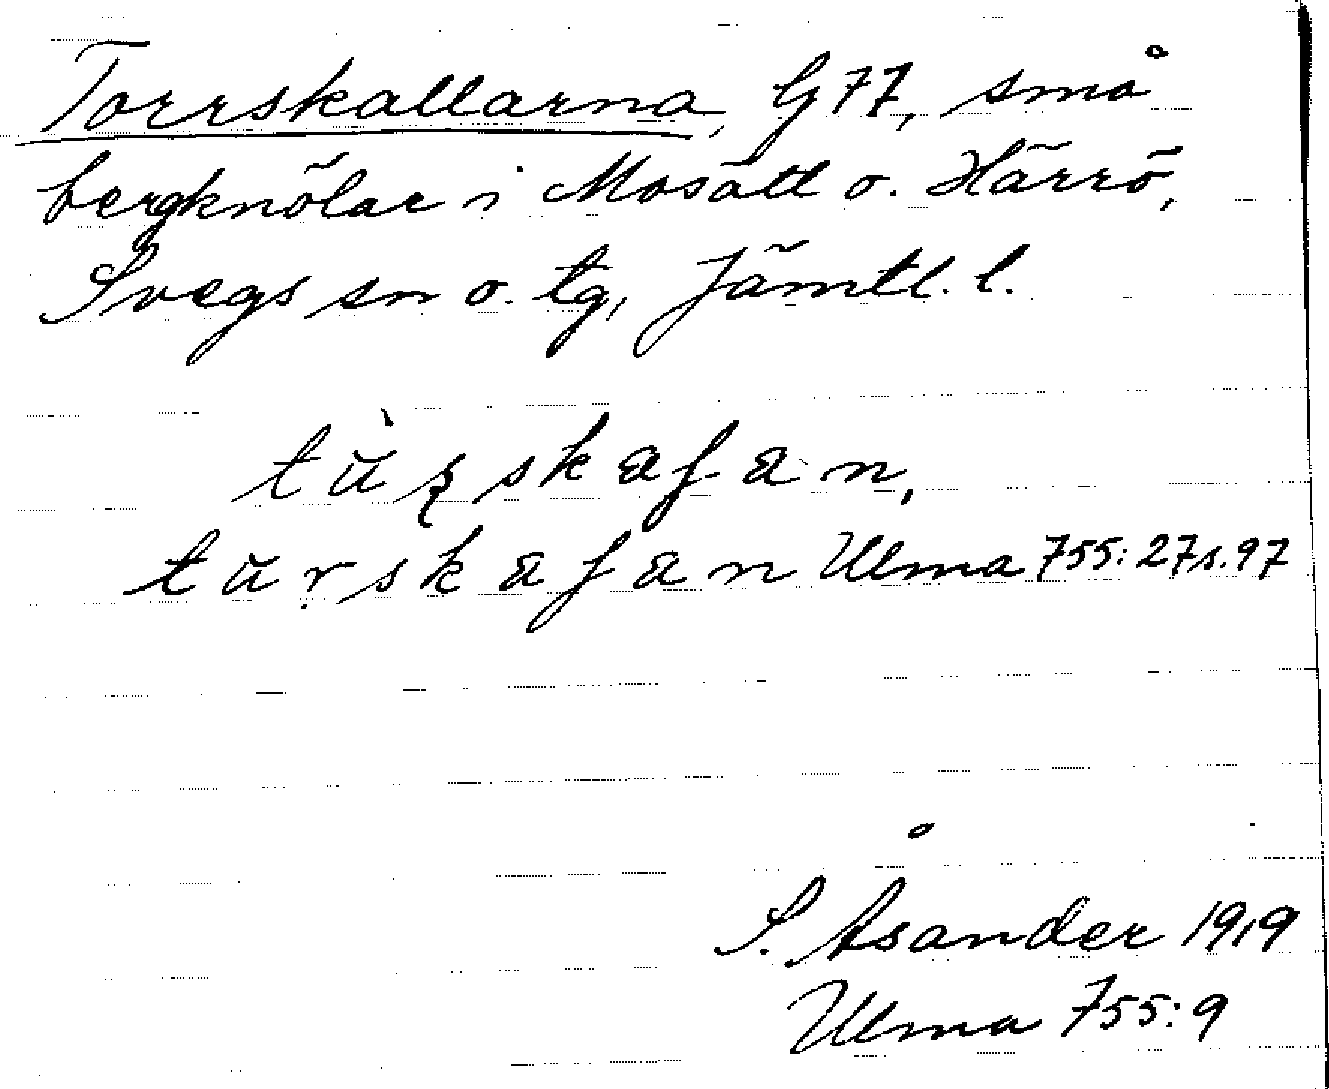 Torrskallarna, G 77, små
bergknölar i Mosätt o. Härrö,
Svegs sn o. tg, Jämtl. l.
tùrskaʃan,
turskaʃan Ulma 755: 27 s. 97
S. Åsander 1919
Ulma 755: 9